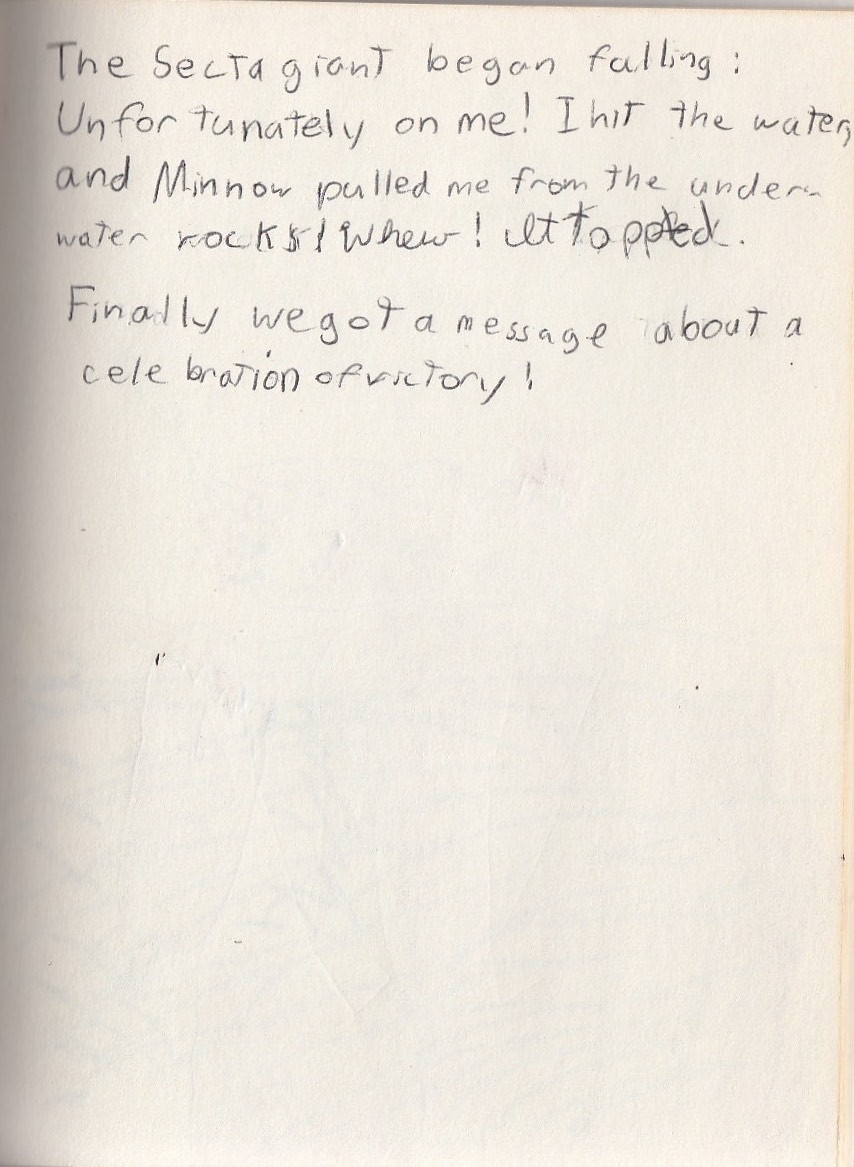 The Secta giant began falling:
Unfortunately on me! I hit the water,
and Minnow pulled me from the under-
water rocks! Whew! It topped.
Finally we got a message about a
celebration of victory!